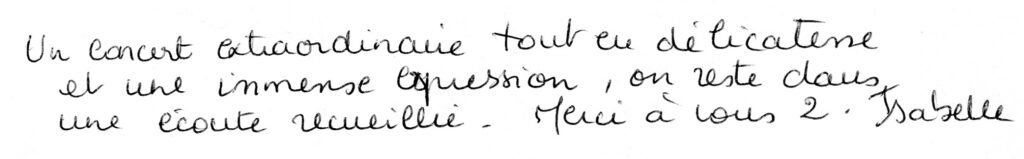 Un concert extraordinaire tout en délicatesse
et une immense expression, on reste dans
une écoute recueillie. Merci à vous 2. Isabelle